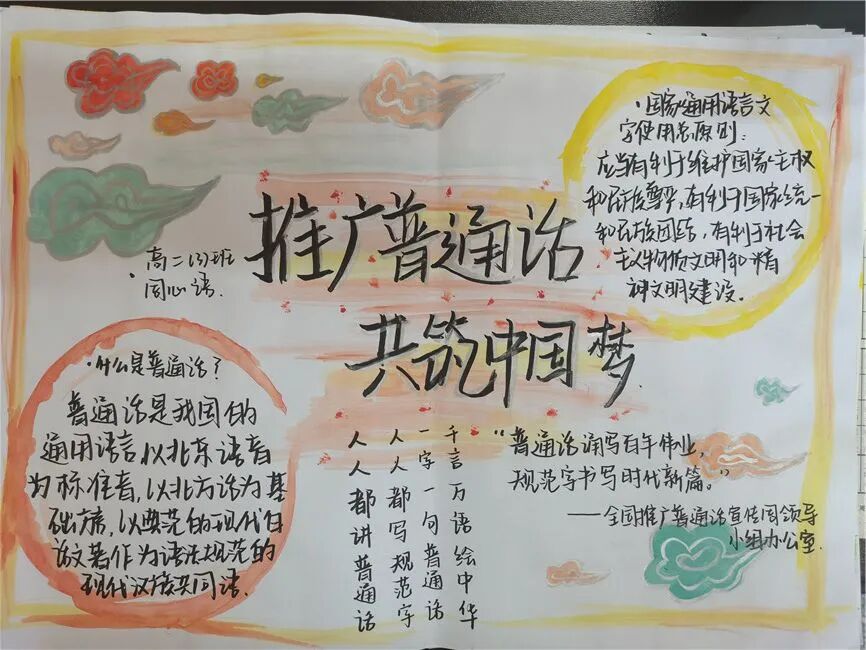 推广普通话
共筑中国梦
·国家通用语言文
字使用总原则:
应当有利于维护国家主权
和民族尊严,有利于国家统一
和民族团结,有利于社会
主义物质文明和精
神文明建设。
·高二(3)班
同心语.
·什么是普通话?
普通话是我国的
通用语言以北京语音
为标准音,以北方话为基
础,以典范的现代白
话文著作为语法规范的
现代汉族共同语.
千言万语绘中华
一字一句普通话
人人都写规范字
人人都讲普通话
"普通话诵写百年伟业,
规范字书写时代新篇。"
——全国推广普通话宣传周领导
小组办公室.